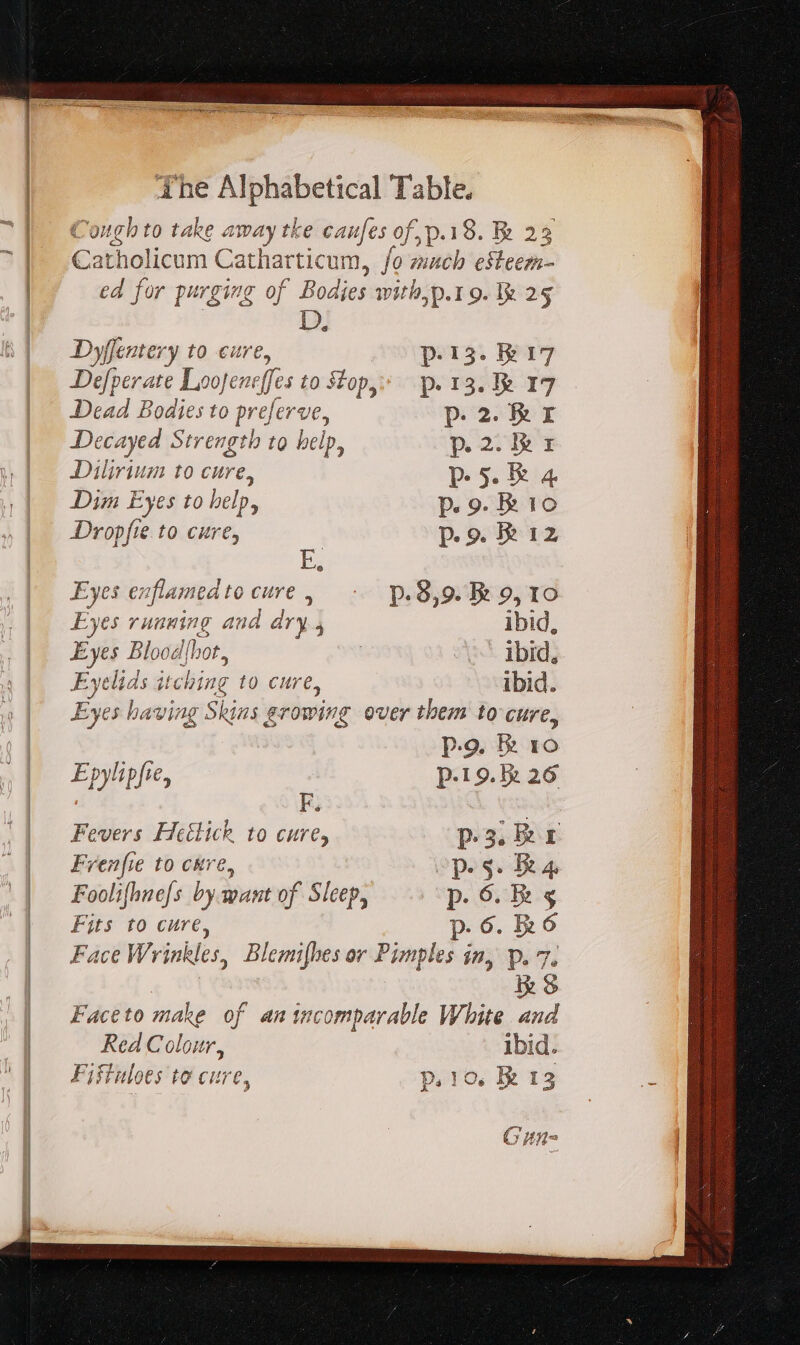 The Alphabetical Table.
Cough to take away the cauſes of, p.18. ℞ 23
Catholicum Catharticum, ſo much eſteem-
ed for purging of Bodies with, p.19. ℞ 25
D.
Dyſſentery to cure, p.13. ℞ 17
Deſperate Looſeneſſes to Stop, p. 13. ℞ 17
Dead Bodies to preſerve, p. 2. ℞ 1
Decayed Strength to help, p. 2. ℞ 1
Dilirium to cure, p. 5. ℞ 4
Dim Eyes to help, p. 9. ℞ 10
Dropſie to cure, p. 9. ℞ 12
E.
Eyes enflamed to cure, p.8,9. ℞ 9, 10
Eyes running and dry, ibid,
Eyes Bloodſhot, ibid,
Eyelids itching to cure, ibid.
Eyes having Skins growing over them to cure,
p.9. ℞ 10
Epylipſie, p.19. ℞ 26
F.
Fevers Hectick to cure, p. 3. ℞ 1
Frenſie to cure, p. 5. ℞ 4
Fooliſhneſs by want of Sleep, p. 6. ℞ 5
Fits to cure, p. 6. ℞ 6
Face Wrinkles, Blemiſhes or Pimples in, p. 7.
℞ 8
Face to make of an incomparable White and
Red Colour, ibid.
Fiſtuloes to cure, p. 10. ℞ 13
Gun-